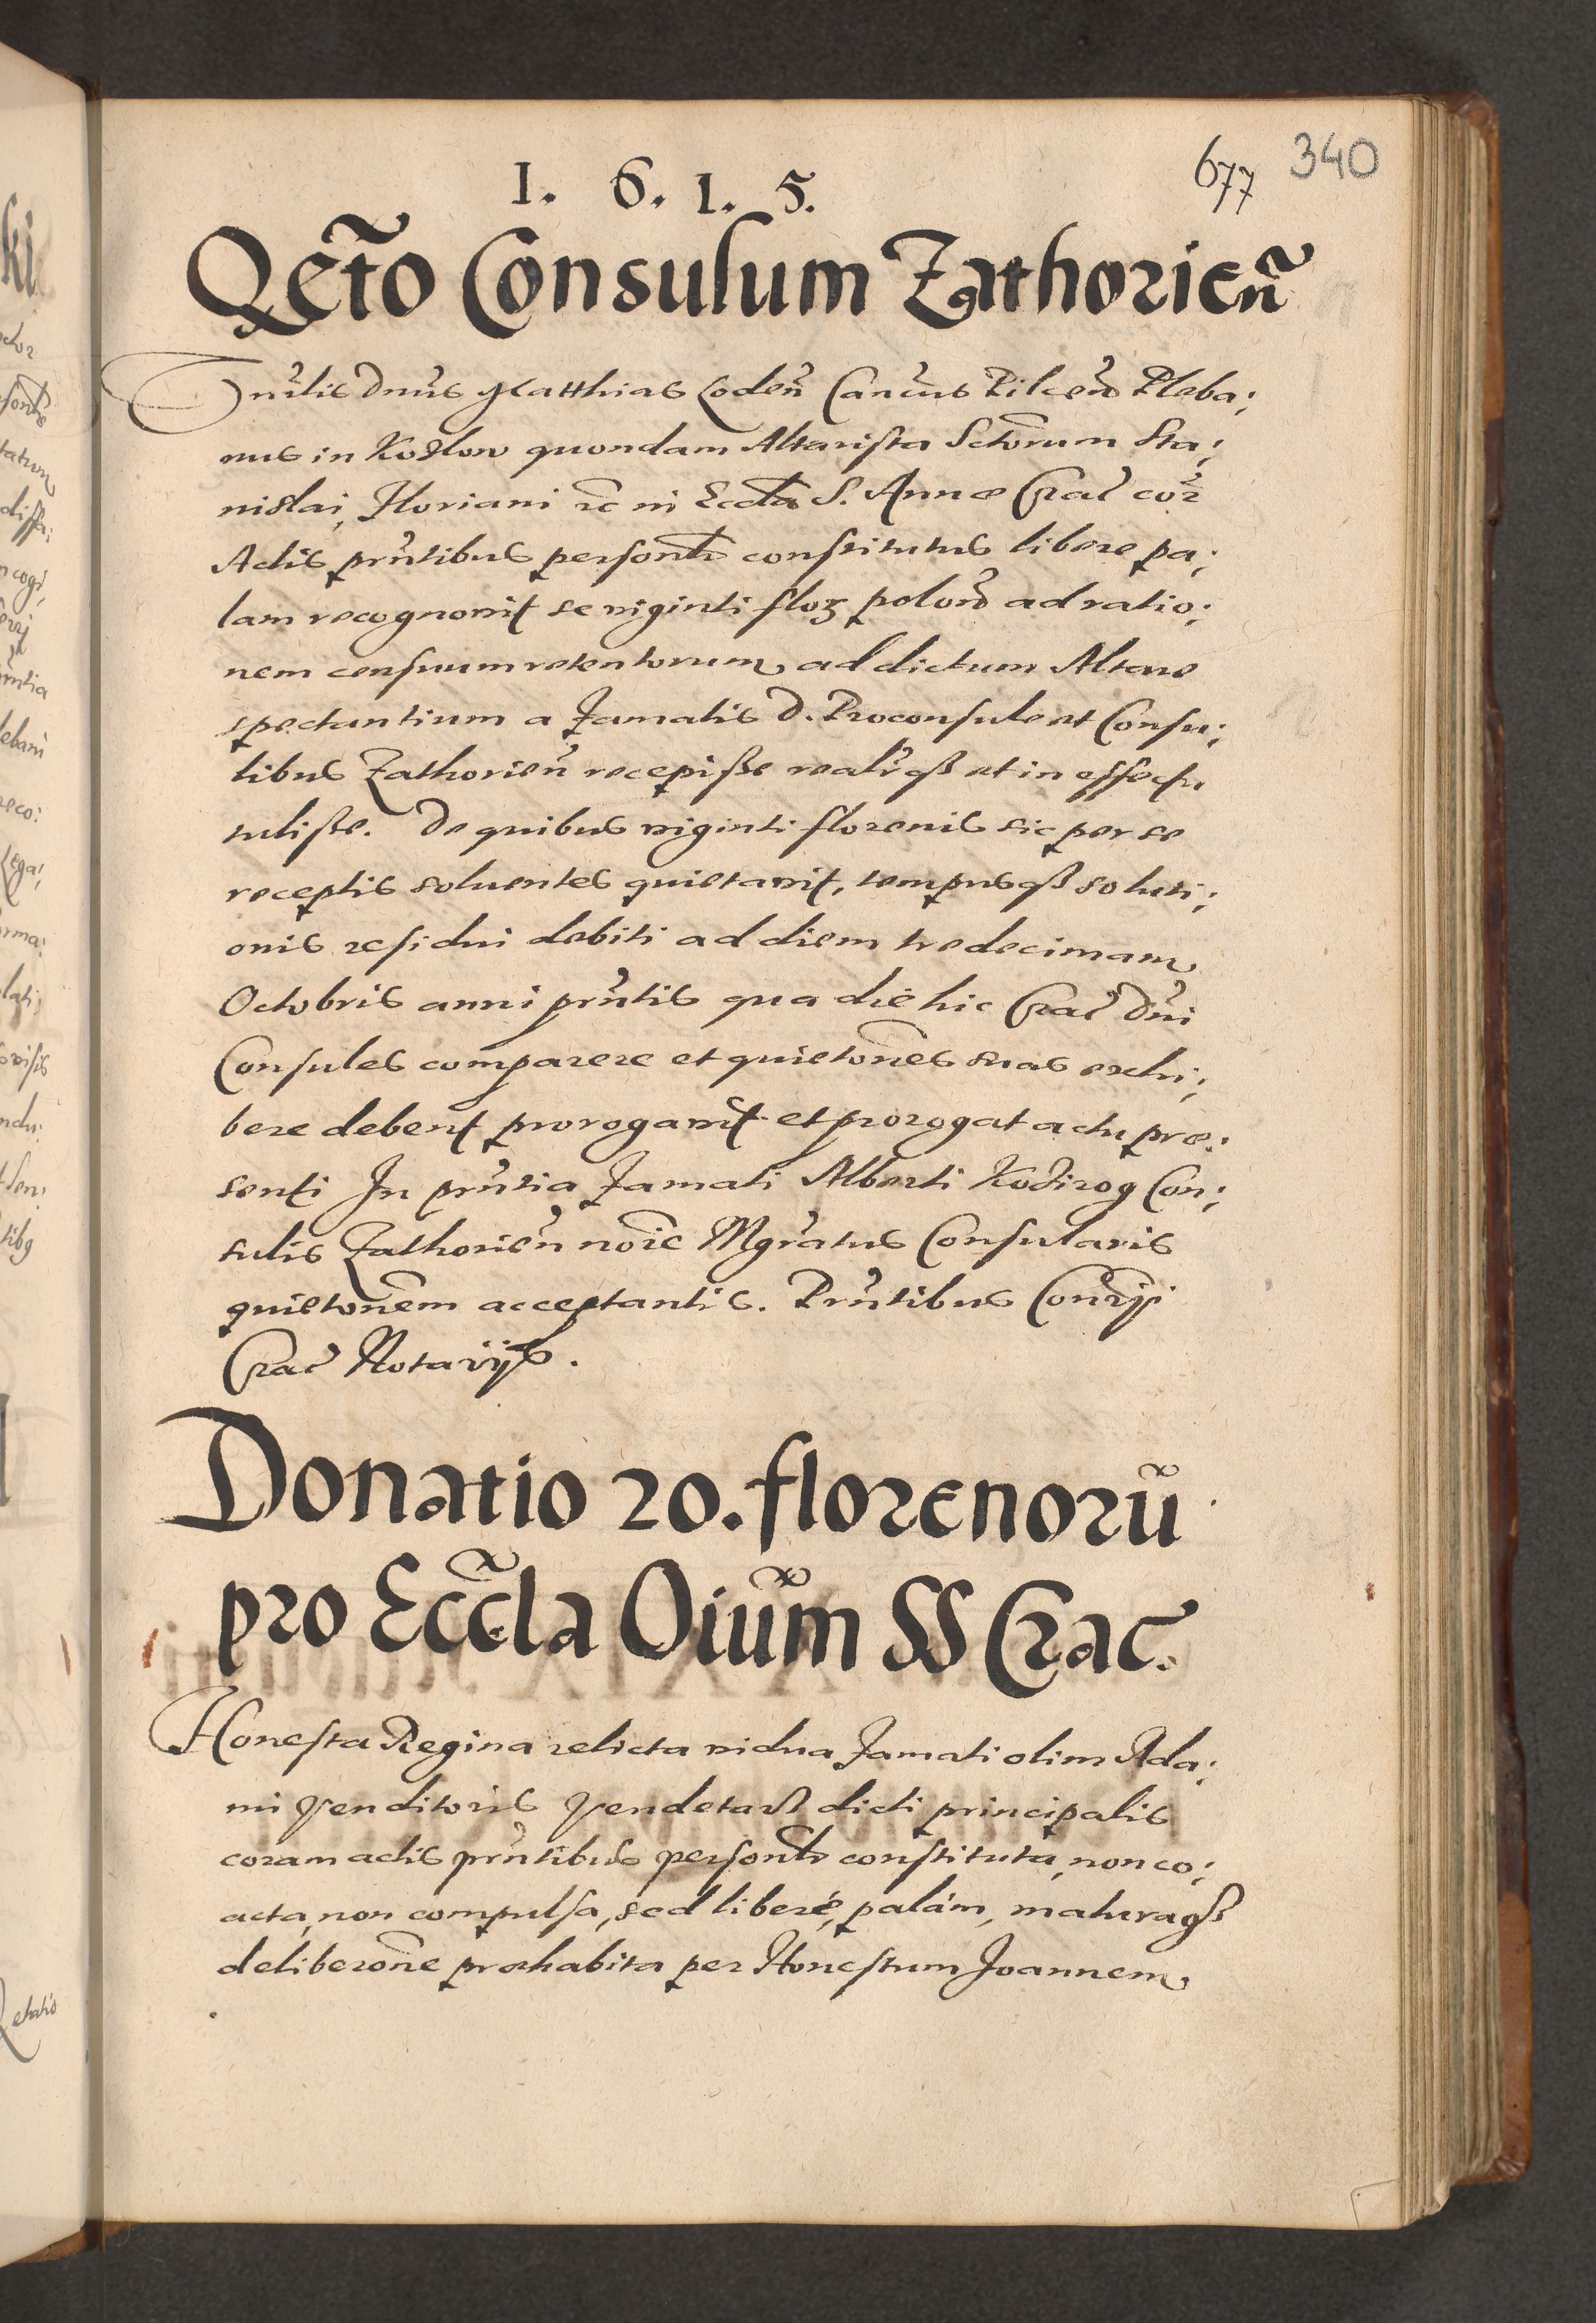 1. 6. 1. 5.
677 340
Qeto Consulum Zathorień
Vnrlis Dnus Matthias Loden Cancus Pilcen Pleba;
nus in Kozlow quondam Altarista Sctorum Sta;
nislai, Floriani etc in Eccla S. Annæ Crac cor
Actis prntibus personlr constitutus libere pa;
lam recognovit se viginti flor polon ad ratio;
nem censuum retentorum ad dictum Altare
spectantium a Famatis D. Proconsule et Consu;
libus Zathorien recepisse realrqz et in effectu
tulisse. De quibus viginti florenis sic per se
receptis soluentes quietavit, tempusqz soluti;
onis residui debiti ad diem tredecimam
Octobris anni prntis qua die hic Crac Dni
Consules comparere et quietones suas exhi;
bere debent prorogavit et prorogat actu præ;
senti In prntia Famati Alberti Kozirog Con;
sulis Zathorien noie Mgratus Consularis
quietonem acceptantis. Prntibus Conrys
Crac Notarijs.
Donatio 20. florenorū
pro Eccla Oium SS Crac.
Honesta Regina relicta vidua Famati olim Ada;
mi Venditoris dicti principalis
coram actis prntibus personlr constituta, non co;
acta, non compulsa, sed liberé, palám, maturaqz
deliberone præhabita per Honestum Joannem